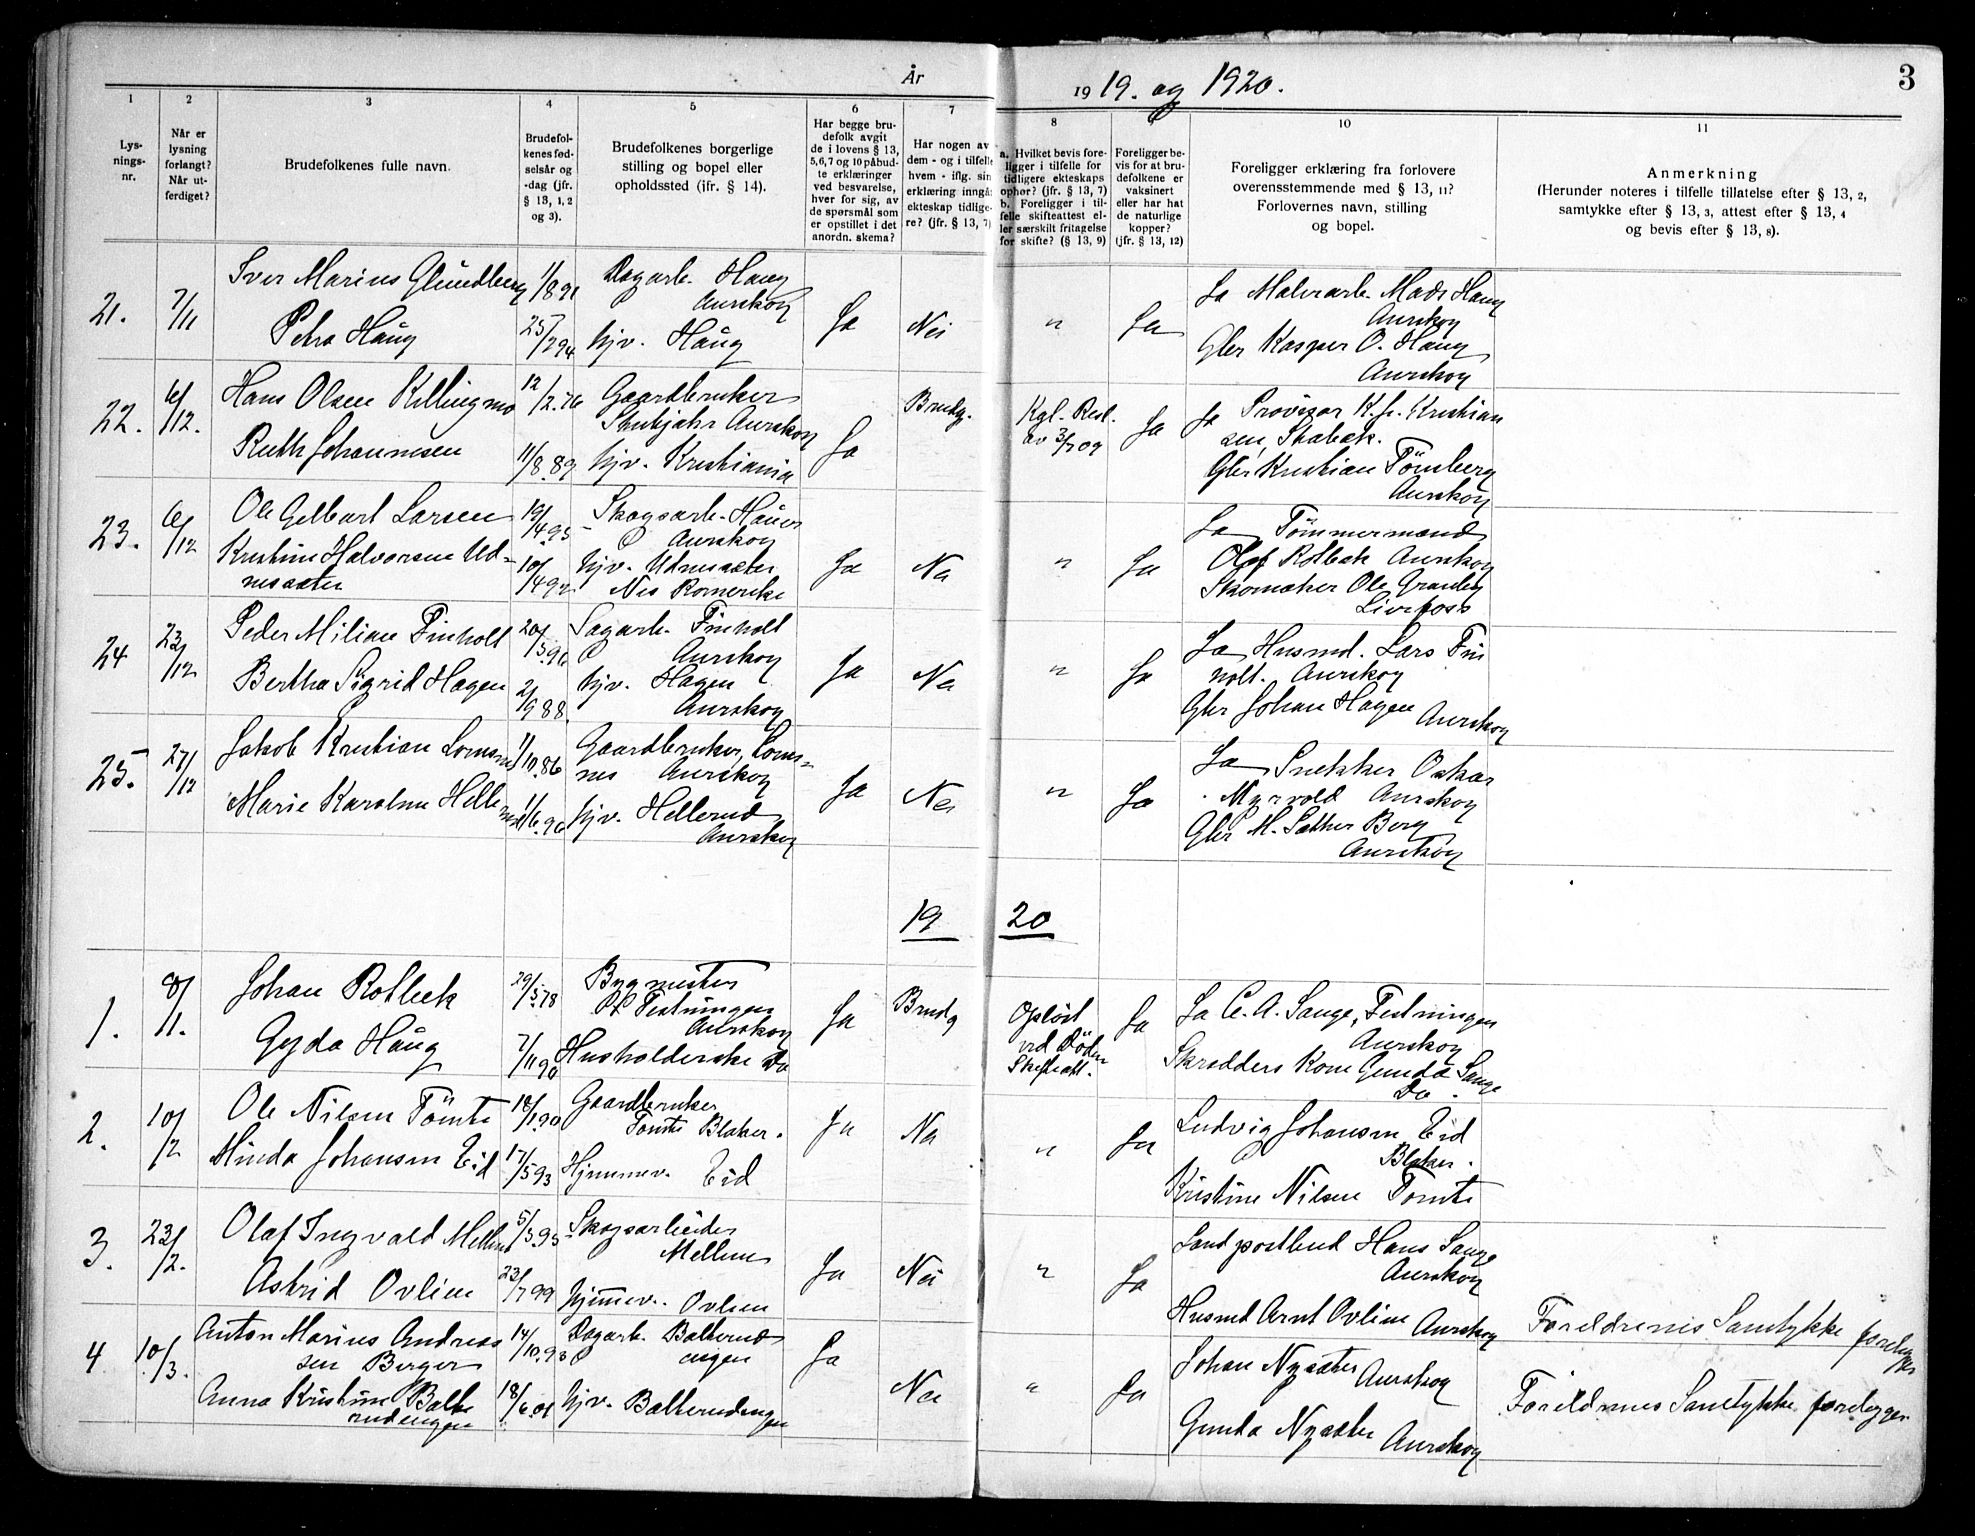 År 1919. og 1920.
3
1 2 3 4 5 6 7 8 9 10 11
Lys-
nings-
nr.
Når er
lysning
forlangt?
Når ut-
ferdiget?
Brudefolkenes fulle navn.
Brudefol-
kenes fød-
selsår og
-dag (jfr.
§ 13, 1, 2
og 3).
Brudefolkenes borgerlige
stilling og bopel eller
opholdssted (jfr. § 14).
Har begge bru-
defolk avgit
de i lovens § 13,
5, 6, 7 og 10 påbud-
te erklæringer
ved besvarelse,
hver for sig, av
de spørsmål som
er opstillet i det
anordn. skema?
Har nogen av
dem - og i tilfelle
hvem - iflg. sin
erklæring inngåt
ekteskap tidlige-
re? (jfr. § 13, 7)
a. Hvilket bevis fore-
ligger i tilfelle for
tidligere ekteskaps
ophør? (jfr. § 13, 7)
b. Foreligger i til-
felle skifteattest el-
ler særskilt fritagelse
for skifte? (§ 13, 9)
Foreligger be-
vis for at bru-
defolkene er
vaksinert
eller har hat
de naturlige
kopper?
(jfr. § 13, 12)
Foreligger erklæring fra forlovere
overensstemmende med § 13, 11?
Forlovernes navn, stilling
og bopel.
Anmerkning
(Herunder noteres i tilfelle tillatelse efter § 13, 2,
samtykke efter § 13, 3, attest efter § 13, 4
og bevis efter § 13, 8).
21. 7/11
Iver Marius Glundberg 1/8 91 Dagarb. Haug
Aurskog
Petra Haug 25/2 94 Hjv. Haug
Ja Nei " Ja
Ja Malerarb. Mads Haug
Aurskog
Gbr Kasper O. Haug
Aurskog
22. 6/12.
Hans Olsen Killingmo 12/2.76 Gaardbruker
Aurskog
Ruth Johannesen 11/8.89 Hjv. Kristiania
Ja Brudg. Kgl. Resl.
av 3/7 09
Ja
Ja Provisor K. Fr. Kristian
sen, Stabæk.
Gbr Kristian Tønsberg
Aurskog
23. 6/12
Ole Gelbart Larsen 19/4.95 Skogsarb. Hauer
Aurskog
Kristine Halvorsen Ud-
nessæter 10/4 92 Hjv. Udnessæter
Nes Romerike
Ja Nei " Ja
Ja Tömmermand
Olaf Rolbæk Aurskog
Skomaker Ole Granby
Lierfoss
24 23/12
Peder Milian Finholt 20/5.96 Sagarb. Finholt
Aurskog
Bertha Sigrid Hagen 2/9 88. Hjv. Hagen
Aurskog
Ja Nei " Ja
Ja Husmd. Lars Fin
holt. Aurskog
Gbr Johan Hagen Aurskog
25. 27/12
Jakob Kristian Lomsnes 1/10.86 Gaardbruker, Loms-
nes Aurskog
Marie Karoline Hellerud 11/6.90 Hjv. Hellerud
Aurskog
Ja Nei " Ja
Ja Snekker Oskar
Myrvold Aurskog
Gbr M. Sæther Berg
Aurskog
19 20
1. 8/1.
Johan Rolbek 29/5.78 Bygmester
Festningen
Aurskog
Gyda Haug 7/11 90 Husholderske Do
Ja Brudg Opløst
ved Döden
Skifteatt.
Ja
Ja C. A. Lange, Festningen
Aurskog
Skredders Kone Gunda Lange
Do.
2. 10/2
Ole Nilsen Tömte 18/1.90 Gaardbruker
Tomte Blaker.
Minda Johansen Eid 17/5 93 Hjemmev. Eid
Ja Nei " Ja
Ludvig Johansen Eid
Blaker.
Kristine Nilsen Tomte
3. 23/2.
Olaf Ingvald Mellem 5/3.95 Skogsarbeider
Mellem
Astrid Ovlien 23/7 99 Hjemmev. Ovlien
Ja Nei " Ja
Landpostbud Hans Lange
Aurskog
Husmd Arnt Ovlien Aurskog
Foreldrenes Samtykke foreligger
4 10/3.
Anton Marius Andreas
sen Berger 14/10.93 Dagarb. Balterud
engen
Anna Kristine Balte
rudengen 18/6.01 Hjv. Balterudengen
Ja Nei " Ja
Johan Nysæter Aurskog
Gunda Nysæter Aurskog
Foreldrenes Samtykke foreligger